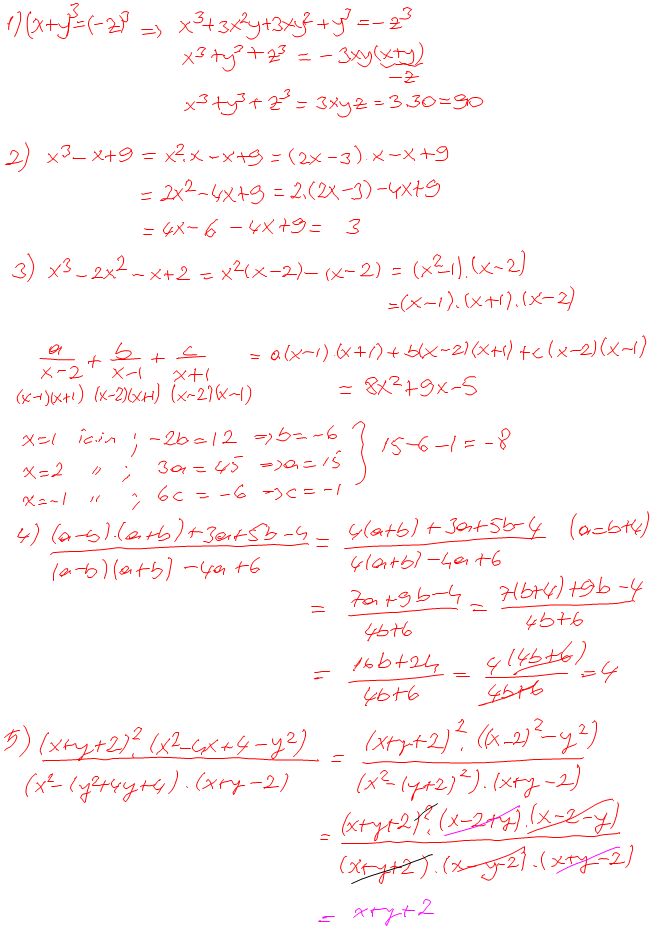 1) (x+y)³=(-z)³ => x³+3x²y+3xy²+y³=-z³
x³+y³+z³ = -3xy(x+y)
-z
x³+y³+z³ = 3xyz = 3.30=90
2) x³-x+9 = x².x-x+9=(2x-3).x-x+9
= 2x²-4x+9 = 2.(2x-3)-4x+9
= 4x-6-4x+9 = 3
3) x³-2x²-x+2 = x²(x-2)-(x-2) = (x²-1).(x-2)
=(x-1).(x+1).(x-2)
a/(x-2) + b/(x-1) + c/(x+1) = a(x-1).(x+1)+b(x-2)(x+1)+c(x-2)(x-1)
(x-1)(x+1) (x-2)(x+1) (x-2)(x-1) = 8x²+9x-5
x=1 için ; -2b=12 =>b=-6
x=2 " ; 3a=45 =>a=15 } 15-6-1=-8
x=-1 " ; 6c=-6 =>c=-1
4) ((a-b).(a+b)+3a+5b-4)/((a-b)(a+b)-4a+6) = (4(a+b)+3a+5b-4)/(4(a+b)-4a+6) (a=b+4)
= (7a+9b-4)/(4b+6) = (7(b+4)+9b-4)/(4b+6)
= (16b+24)/(4b+6) = (4(4b+6))/(4b+6) = 4
5) ((x+y+2)².(x²-4x+4-y²))/((x²-(y²+4y+4).(x+y-2)) = ((x+y+2)².((x-2)²-y²))/((x²-(y+2)²).(x+y-2))
= ((x+y+2)².(x-2+y).(x-2-y))/((x+y+2).(x-y-2).(x+y-2))
= x+y+2